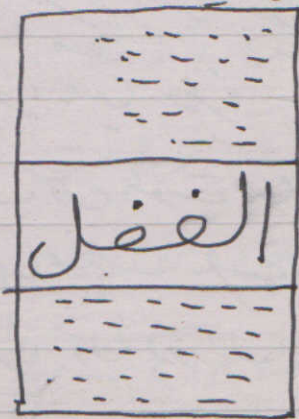 الفضل